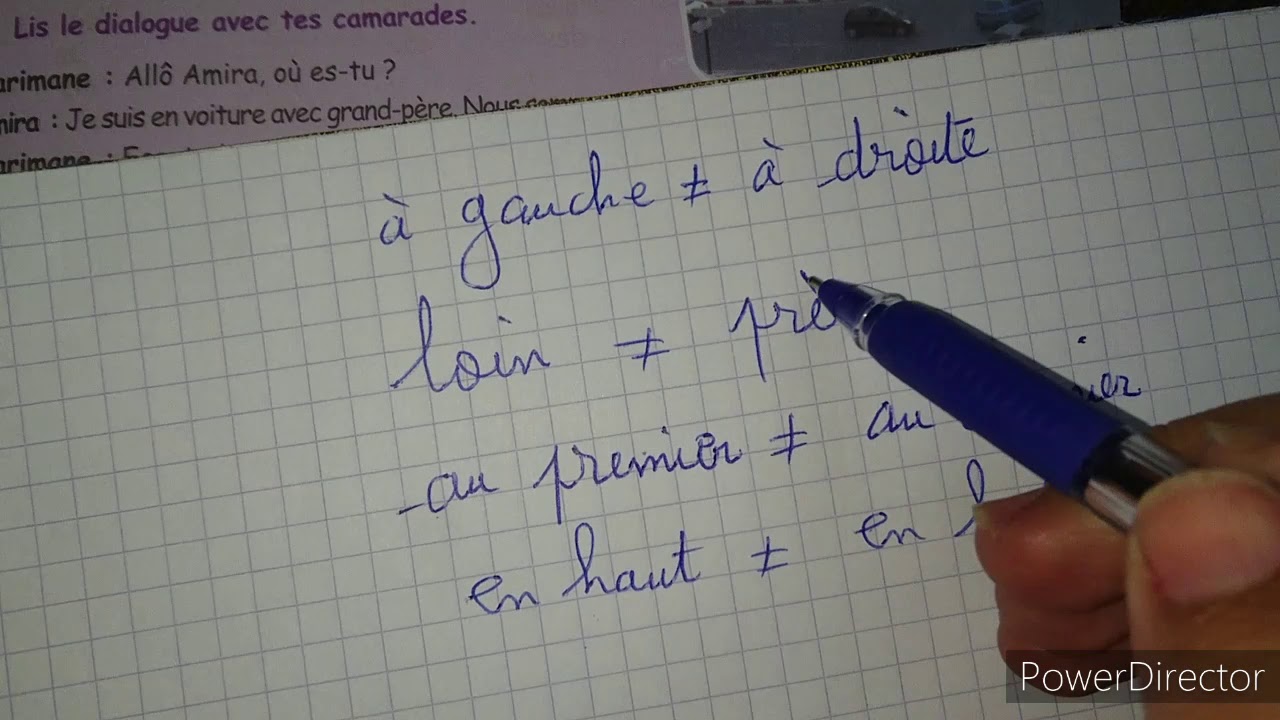 Lis le dialogue avec tes camarades.
arimane : Allô Amira, où es-tu ?
mira : Je suis en voiture avec grand-père. Nous
arimane :
à gauche ≠ à droite
loin ≠ pre
au premier ≠ au
en haut ≠ en
PowerDirector